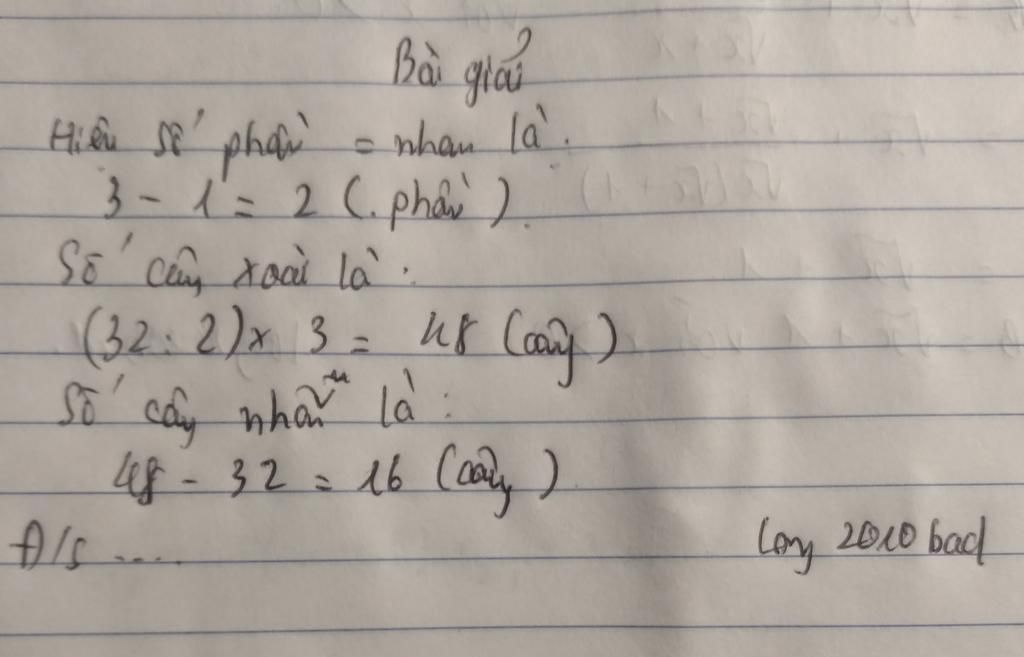 Bài giải
Hiệu số phần = nhau là.
3 - 1 = 2 (phần).
Số cây xoài là:
(32 : 2) x 3 = 48 (cây)
Số cây nhãn là:
48 - 32 = 16 (cây)
Đ/s ....
Long 2010 bad